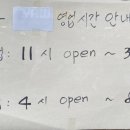 영업시간 안내
: 11시 open ~ 3
: 4시 open ~ 8